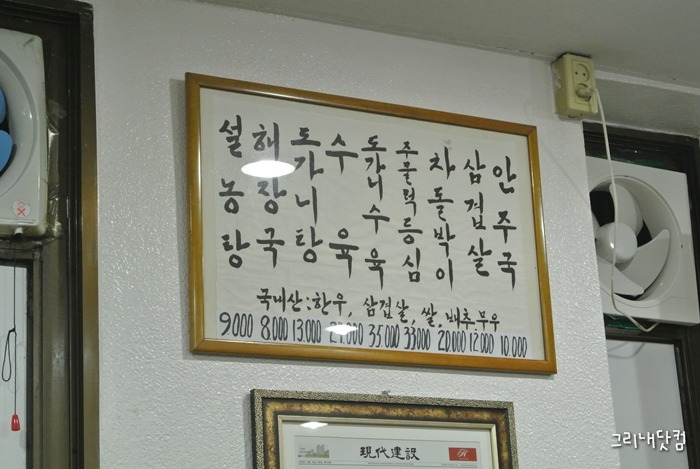 설농탕
해장국
도가니탕
수육
도가니수육
주물럭등심
차돌박이
삼겹살
안주국
국내산:한우, 삼겹살, 쌀, 배추무우
9.000 8.000 13.000 35.000 33.000 20.000 12.000 10.000
現代建設
그리내닷컴